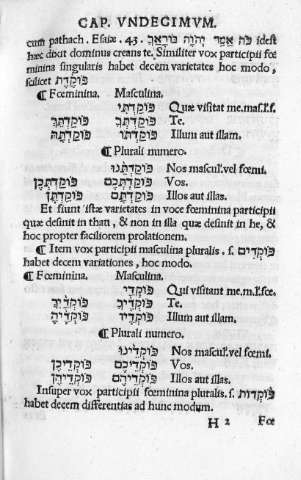 CAP. VNDECIMVM.
cum pathach. Esaiæ. 43. כֹּה אָמַר יְהֹוָה בּוֹרַאֲךָ idest
hæc dixit dominus creans te. Similiter vox participii fœ
minina singularis habet decem varietates hoc modo,
scilicet פּוֹקֶדֶת
¶ Fœminina. Masculina.
פּוֹקַדְתִּי Quæ visitat me.mas.l.fœ.
פּוֹקַדְתֵּךְ פּוֹקַדְתֶּךָ Te.
פּוֹקַדְתָּהּ פּוֹקַדְתּוֹ Illum aut illam.
¶ Plurali numero.
פּוֹקַדְתֵּנוּ Nos mascul.vel fœmi.
פּוֹקַדְתְּכֶן פּוֹקַדְתְּכֶם Vos.
פּוֹקַדְתָּן פּוֹקַדְתָּם Illos aut illas.
Et fiunt istæ varietates in voce fœminina participii
quæ desinit in thau, & non in illa quæ desinit in he, &
hoc propter faciliorem prolationem.
¶ Item vox participii masculina pluralis. s. פּוֹקְדִים
habet decem variationes, hoc modo.
¶ Fœminina. Masculina.
פּוֹקְדַי Qui visitant me.mas.l.fœ.
פּוֹקְדַיִךְ פּוֹקְדֶיךָ Te.
פּוֹקְדֶיהָ פּוֹקְדָיו Illum aut illam.
¶ Plurali numero.
פּוֹקְדֵינוּ Nos mascul.vel fœmi.
פּוֹקְדֵיכֶן פּוֹקְדֵיכֶם Vos.
פּוֹקְדֵיהֶן פּוֹקְדֵיהֶם Illos aut illas.
Insuper vox participii fœminina pluralis. s. פּוֹקְדוֹת
habet decem differentias ad hunc modum.
H 2 Fœ